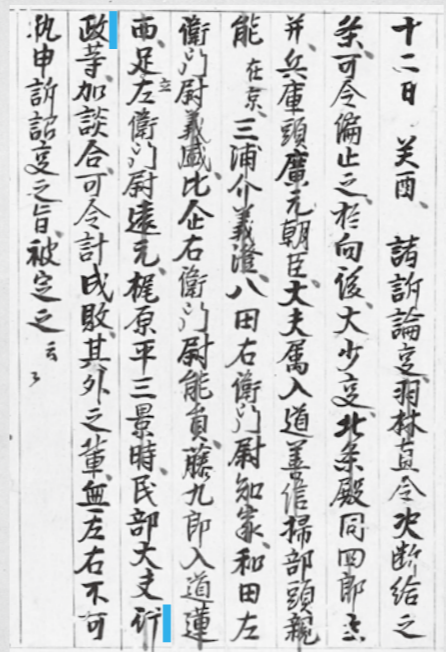 十二日 癸酉 諸訴論事羽林直令决断給之
条可令偏止之於向後大少事北条殿同四郎主
并兵庫頭廣元朝臣大夫属入道善信掃部頭親
能在京三浦介義澄八田右衛門尉知家和田左
衛門尉義盛比企右衛門尉能員藤九郎入道蓮
西足立左衛門尉遠元梶原平三景時民部大夫行
政等加談合可令計成敗其外之輩無左右不可
執申訴詔事之旨被定之云々